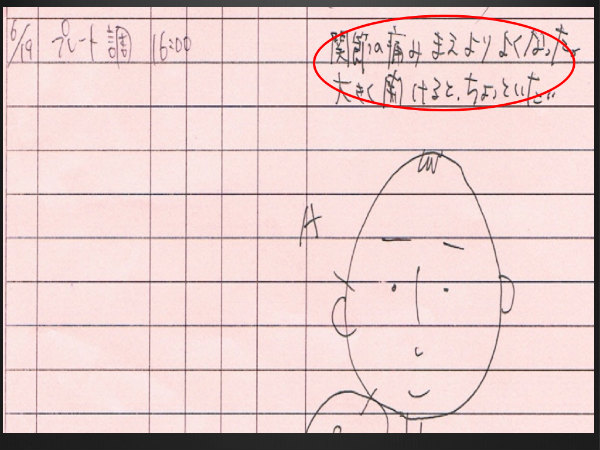 6/19 プレート調 16:00
関節の痛みまえよりよくなった。
大きく開けると、ちょっといたい
A